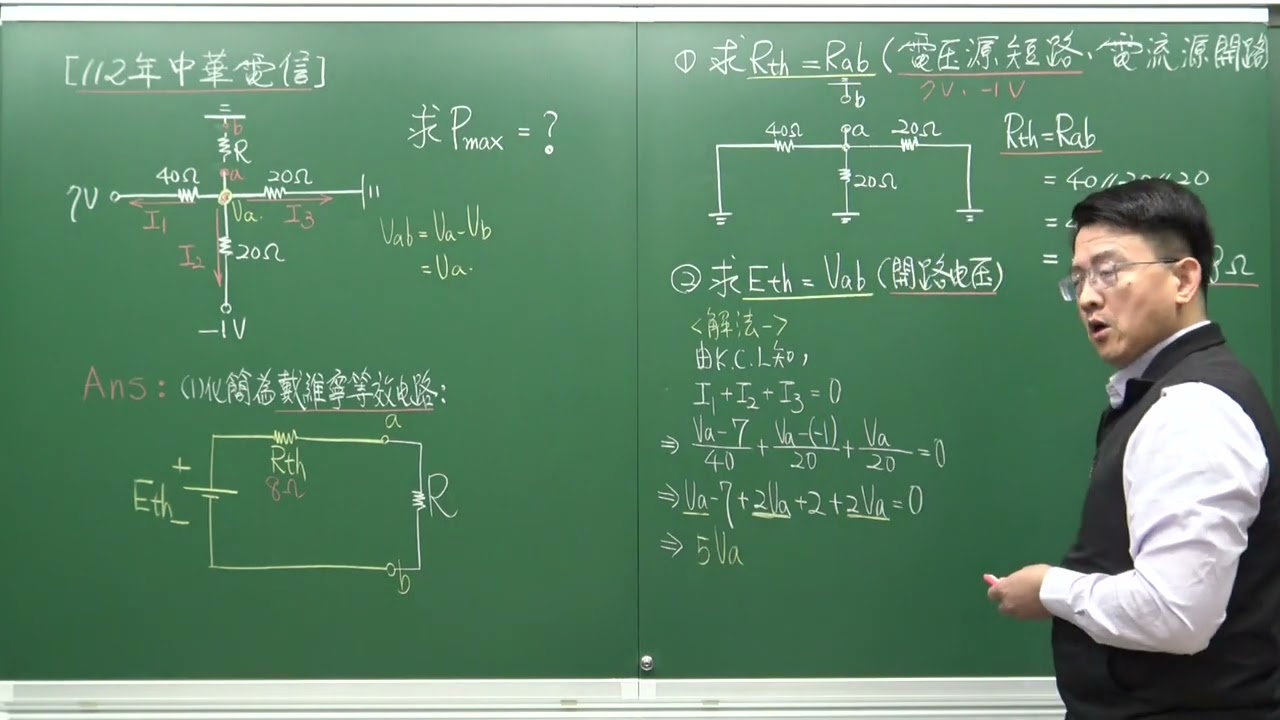 [112年中華電信]
求 Pmax = ?
b
R
a
40Ω
20Ω
7V
Va.
I1
I3
I2
20Ω
-1V
Vab = Va - Vb
= Va.
Ans: (1)化簡為戴維寧等效电路:
a
+
Rth
8Ω
Eth
-
R
b
① 求 Rth = Rab (電压源短路、電流源開路
7V、-1V
b
40Ω
a
20Ω
20Ω
Rth = Rab
= 40//20//20
=
= 8Ω
② 求 Eth = Vab (開路电压)
<解法一>
由K.C.L知,
I1 + I2 + I3 = 0
⇒ (Va-7)/40 + (Va-(-1))/20 + Va/20 = 0
⇒ Va - 7 + 2Va + 2 + 2Va = 0
⇒ 5Va